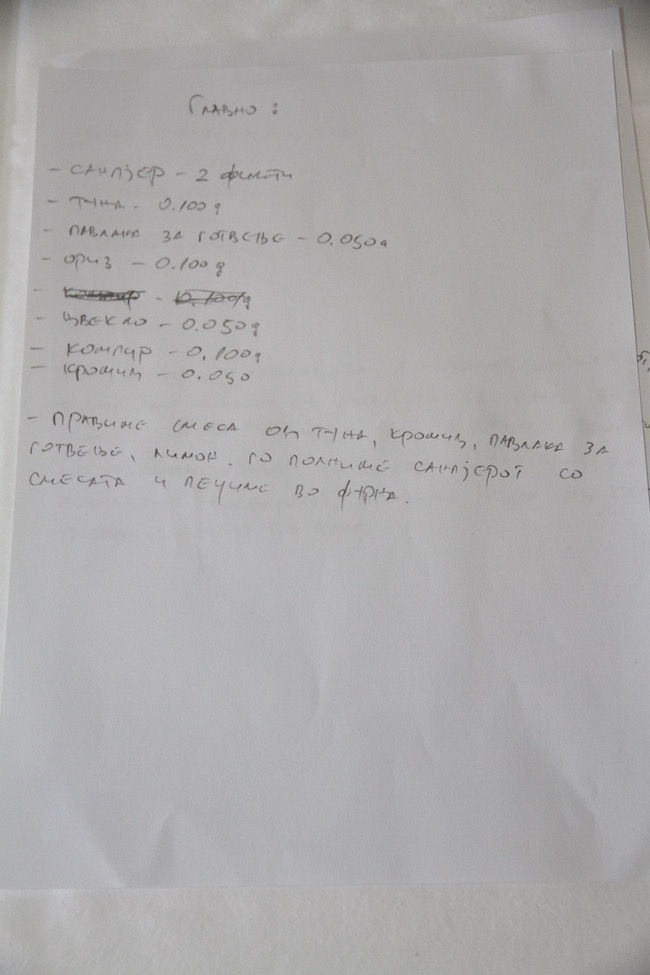 Главно:
- САНПЈЕР - 2 филети
- ТУНА - 0.100g
- ПАВЛАКА ЗА ГОТВЕЊЕ - 0.050g
- ОРИЗ - 0.100g
- компир - 0.100g
- ЦВЕКЛО - 0.050g
- КОМПИР - 0.100g
- КРОМИД - 0.050
- ПРАВИМЕ СМЕСА ОД ТУНА, КРОМИД, ПАВЛАКА ЗА
ГОТВЕЊЕ, ЛИМОН. ГО ПОЛНИМЕ САНПЈЕРОТ СО
СМЕСАТА И ПЕЧИМЕ ВО ФУРНА.